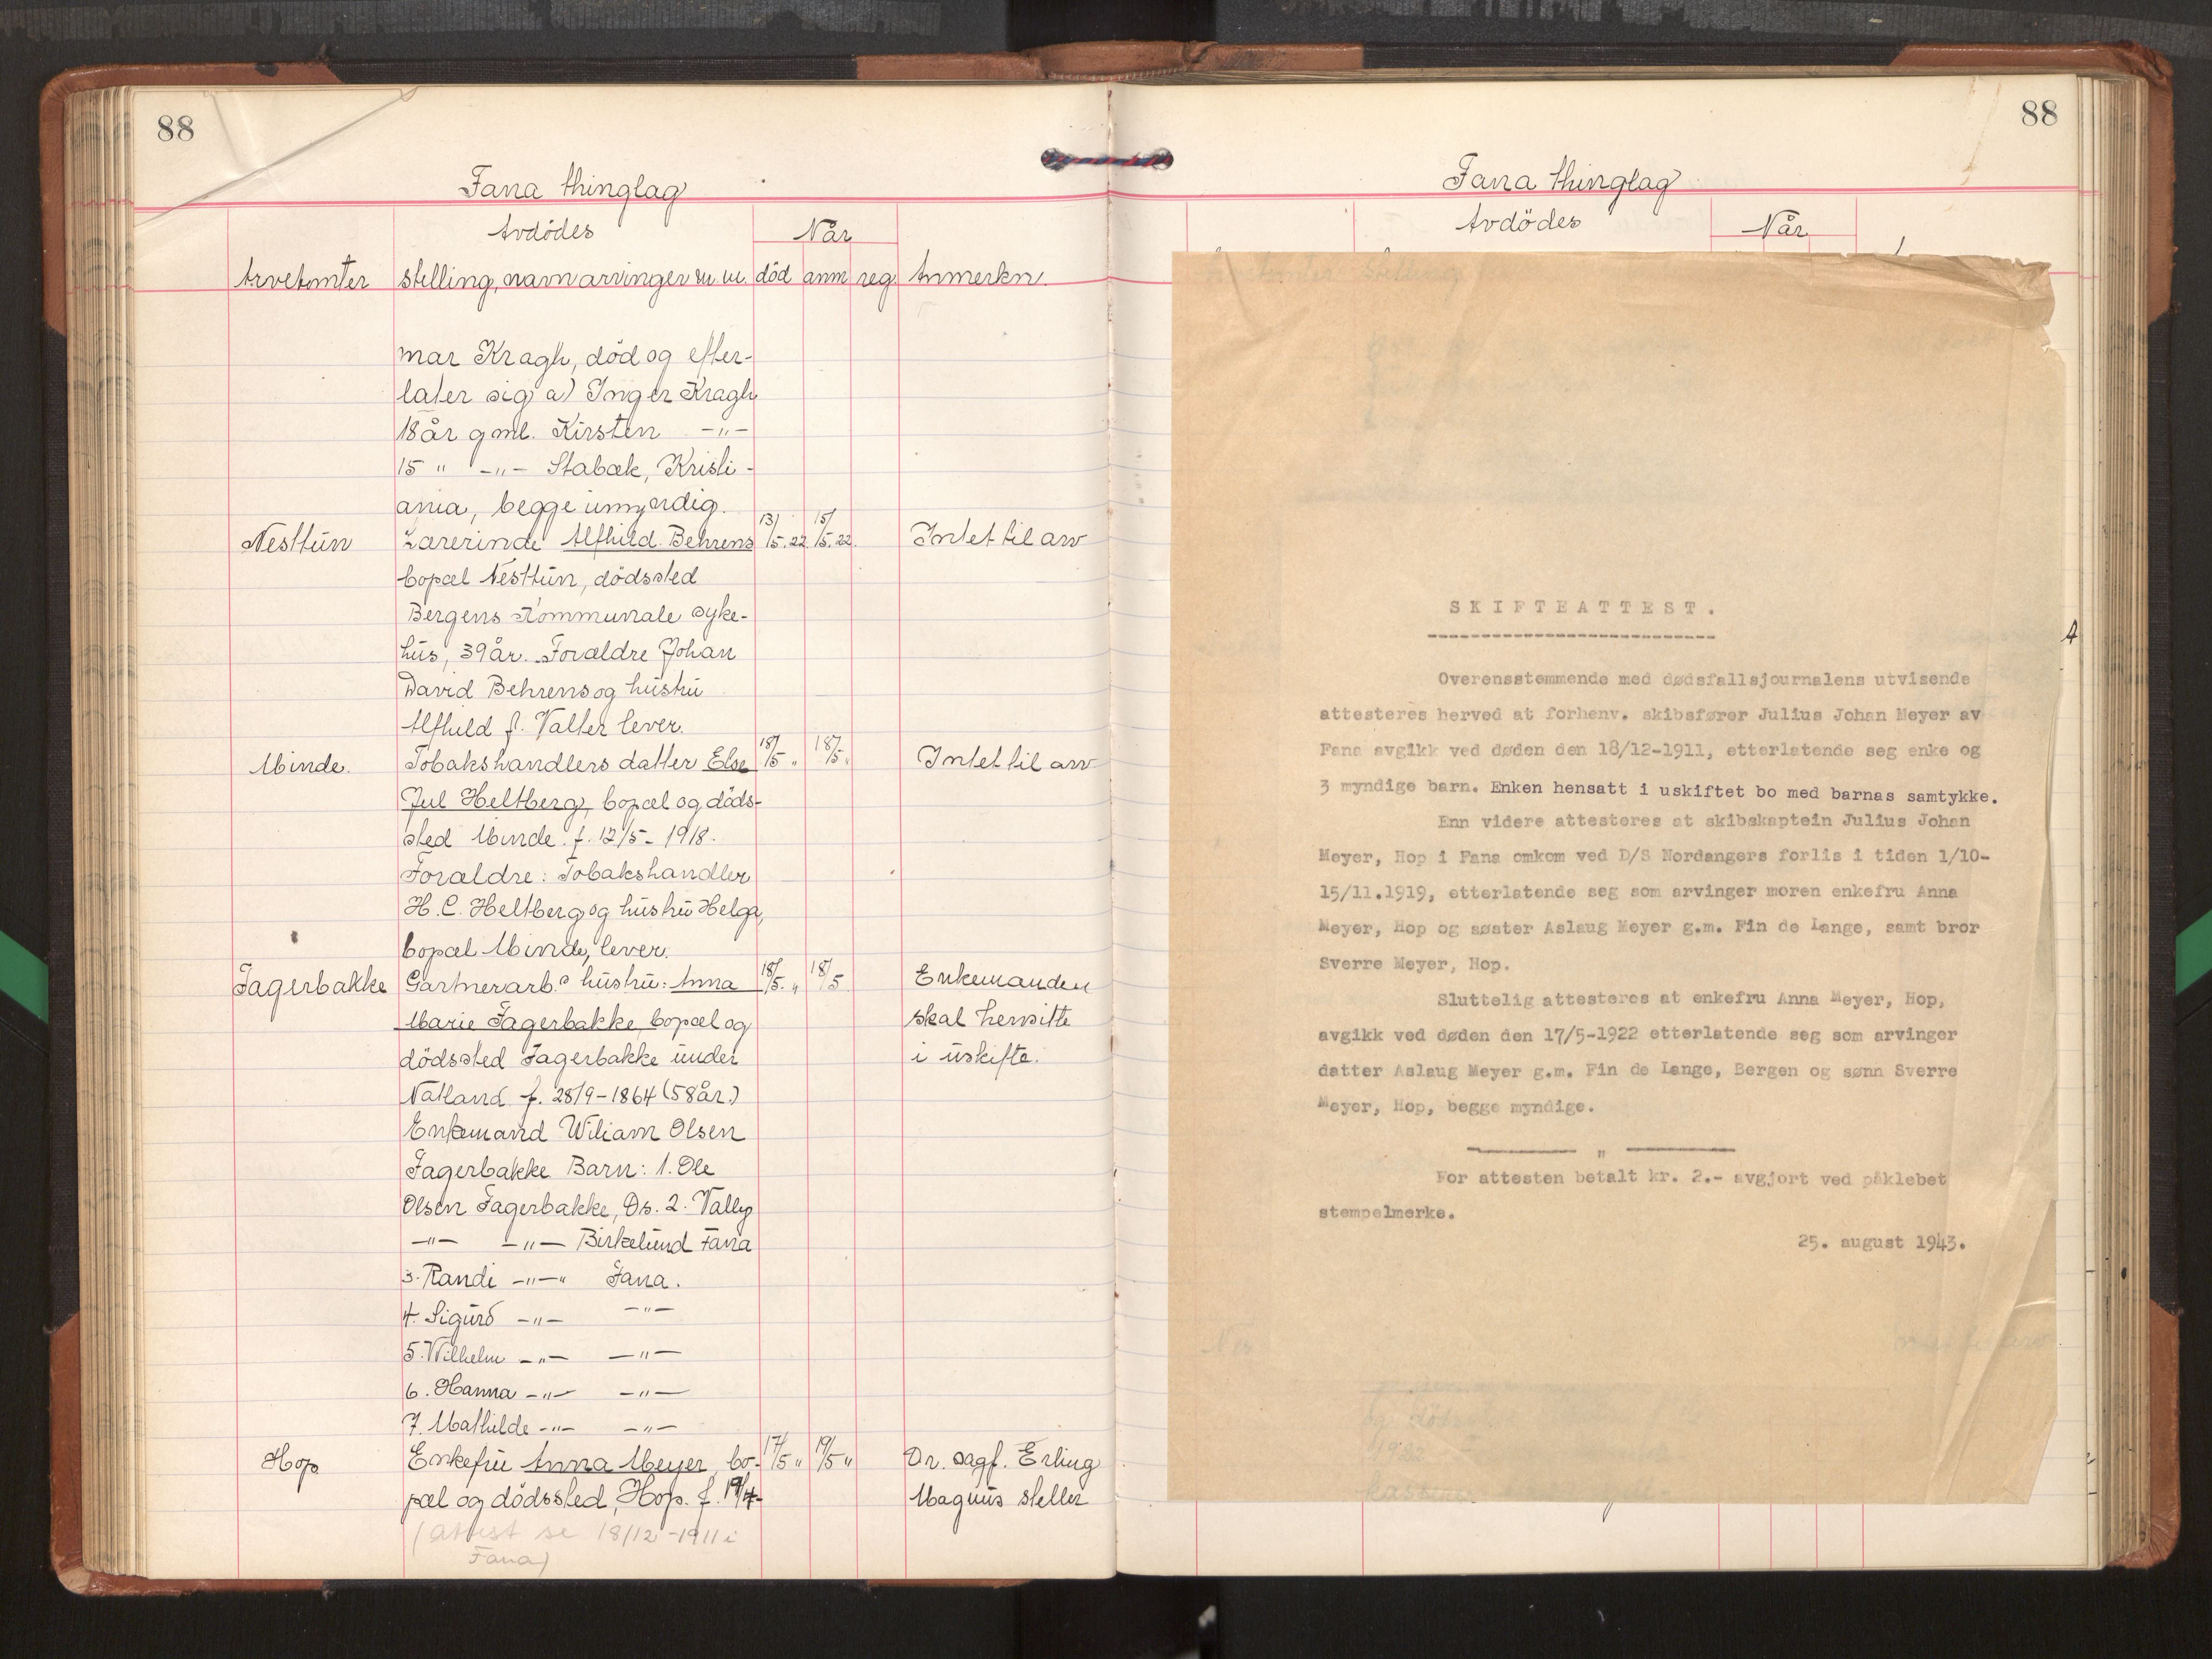 88
Fana thinglag
Avdödes
Når
Arvetomter stelling, navn arvinger m.m. död anm reg. Anmerkn.
mar Kragh, död og efter-
later sig a) Inger Kragh
18 år gml. Kirsten -"-
15 " -"- Stabæk, Kristi-
ania, begge umyndig.
Nesttun Lærerinde Alfhild Behrens 13/5.22 15/5.22. Intet til arv
bopæl Nesttun, dödssted
Bergens Kommunale syke-
hus, 39 år. Forældre Johan
David Behrens og hustru
Alfhild f. Valter lever.
Minde. Tobakshandlers datter Else 18/5 " 18/5 " Intet til arv
Jul Heltberg, bopæl og döds-
sted Minde. f. 12/5 - 1918.
Forældre: Tobakshandler
H. C. Heltberg og hustru Helga,
bopæl Minde, lever.
Fagerbakke Gartnerarb.s hustru: Anna 18/5. " 18/5 Enkemanden
Marie Fagerbakke, bopæl og skal hensitte
dödssted Fagerbakke under i uskifte.
Natland f. 28/9 - 1864 (58 år.)
Enkemand Wiliam Olsen
Fagerbakke Barn: 1. Ole
Olsen Fagerbakke, Os. 2. Vally
-"- -"- Birkelund Fana
3. Randi -"-" Fana.
4. Sigurd -"- -"-
5. Wilhelm -"- -"-
6. Hanna -"- -"-
7. Mathilde -"- -"-
Hop Enkefru Anna Meyer, bo- 17/5 " 19/5 " Or. sagf. Erling
pæl og dödssted, Hop. f. 19/4- Magnus steller
(attest se 18/12 -1911 i
Fana)
88
Fana thinglag
Avdödes
Når
SKIFTEATTEST.
Overensstemmende med dødsfallsjournalens utvisende
attesteres herved at forhenv. skibsfører Julius Johan Meyer av
Fana avgikk ved døden den 18/12-1911, etterlatende seg enke og
3 myndige barn. Enken hensatt i uskiftet bo med barnas samtykke.
Enn videre attesteres at skibskaptein Julius Johan
Meyer, Hop i Fana omkom ved D/S Nordangers forlis i tiden 1/10-
15/11.1919, etterlatende seg som arvinger moren enkefru Anna
Meyer, Hop og søster Aslaug Meyer g.m. Fin de Lange, samt bror
Sverre Meyer, Hop.
Sluttelig attesteres at enkefru Anna Meyer, Hop,
avgikk ved døden den 17/5-1922 etterlatende seg som arvinger
datter Aslaug Meyer g.m. Fin de Lange, Bergen og sønn Sverre
Meyer, Hop, begge myndige.
"
For attesten betalt kr. 2.- avgjort ved påklebet
stempelmerke.
25. august 1943.